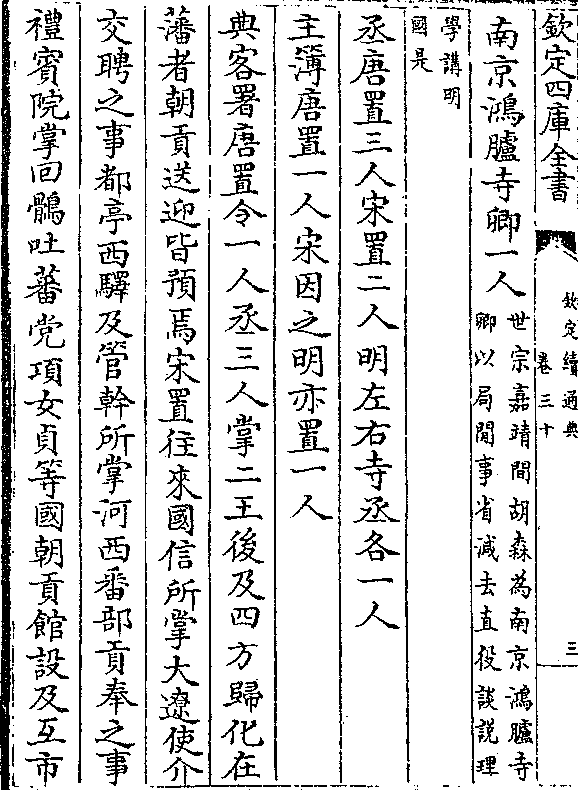 欽定四庫全書
欽定續通典
卷三十
三
南京鴻臚寺卿一人
世宗嘉靖間胡森為南京鴻臚寺
卿以局閒事省減去直役談說理
學講明
國是
丞唐置三人宋置二人明左右寺丞各一人
主簿唐置一人宋因之明亦置一人
典客署唐置令一人丞三人掌二王後及四方歸化在
藩者朝貢送迎皆預焉宋置往來國信所掌大遼使介
交聘之事都亭西驛及管幹所掌河西番部貢奉之事
禮賓院掌回鶻吐蕃党項女貞等國朝貢館設及互市